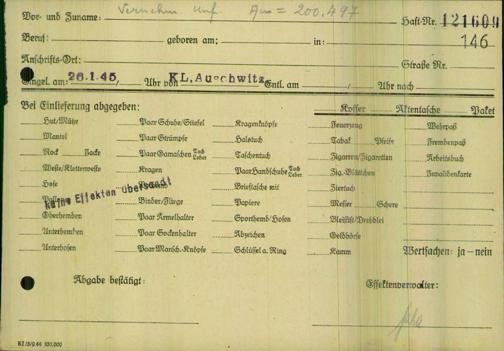 Vor- und Zuname: Haft-Nr. 121600
= 200.497
Beruf: geboren am: in: 146
Anschrifts-Ort: Straße Nr.
Eingel. am: 26.1.45 / Uhr von KL. Auschwitz Entl. am / Uhr nach
Bei Einlieferung abgegeben: Koffer Aktentasche Paket
Hut/Mütze Paar Schuhe/Stiefel Kragenknöpfe Feuerzeug Wehrpaß
Mantel Paar Strümpfe Halstuch Tabak Pfeife Fremdenpaß
Rock Jacke Paar Gamaschen Tuch Leder Taschentuch Zigarren/Zigaretten Arbeitsbuch
Weste/Kletterweste Kragen Paar Handschuhe Tuch Leder Zig.-Blättchen Invalidenkarte
Hose Brieftasche mit Tierbuch
keine Effekten übersandt
Binder/Fliege Papiere Messer Schere
Oberhemden Paar Ärmelhalter Sporthemd/Hosen Bleistift/Drehblei
Unterhemden Paar Sockenhalter Abzeichen Geldbörse
Unterhosen Paar Mansch.-Knöpfe Schlüssel a. Ring Kamm Wertsachen: ja – nein
Abgabe bestätigt: Effektenverwalter: